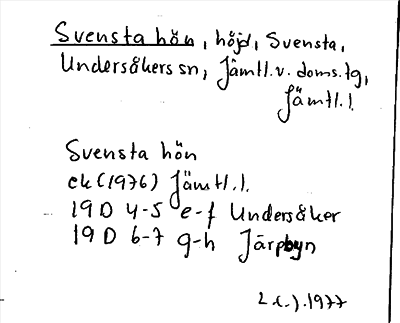 Svensta hön, höjd, Svensta,
Undersåkers sn, Jämtl.v. doms.tg,
Jämtl.l.
Svensta hön
ek (1976) Jämtl.l.
19 D 4-5 e-f Undersåker
19 D 6-7 g-h Järpbyn
1977